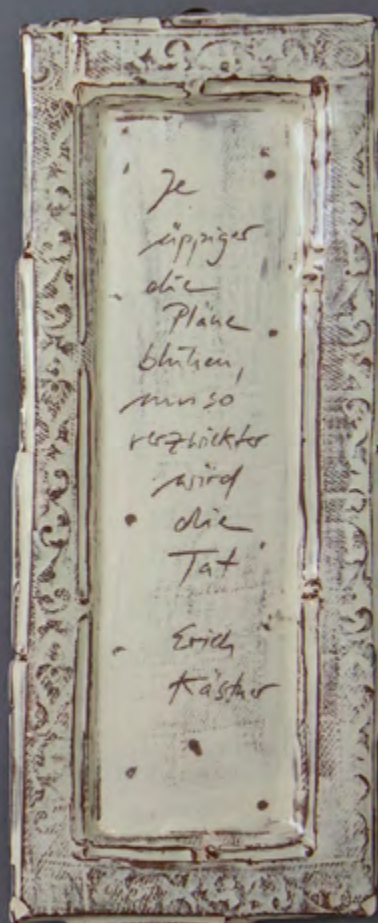 Je
üppiger
die
Pläne
blühen,
umso
verzwickter
wird
die
Tat
Erich
Kästner